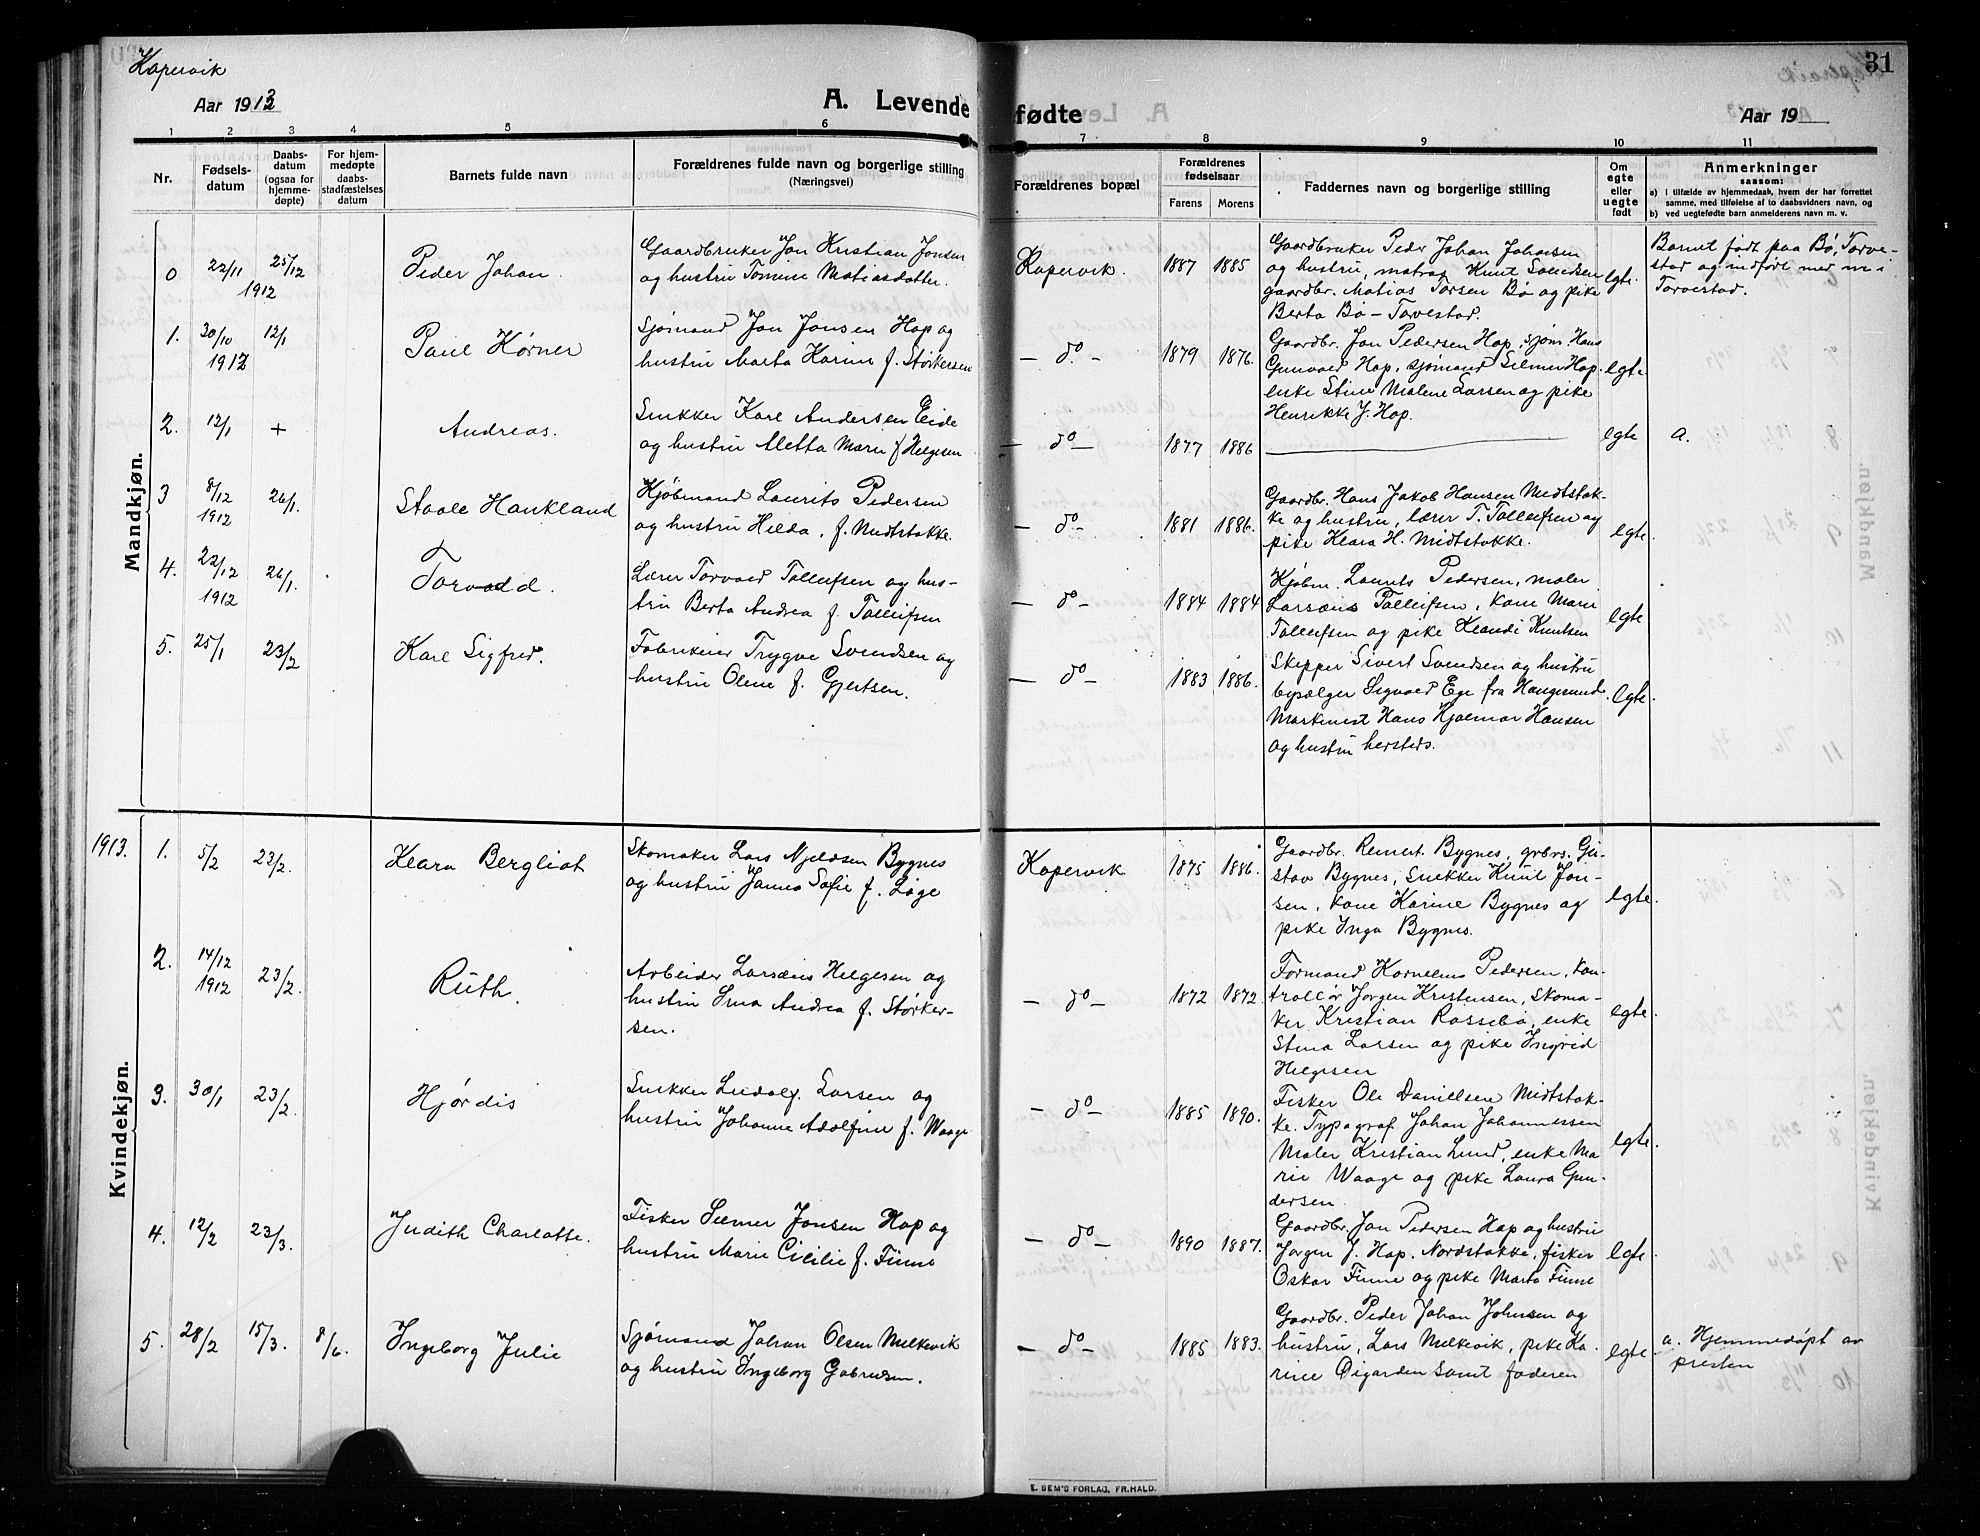 Kopervik
31
Aar 1913
A. Levendefødte
Aar 19
1 2 3 4 5 6 7 8 9 10 11
Nr.
Fødsels-
datum
Daabs-
datum
(ogsaa for
hjemme-
døpte)
For hjem-
medøpte
daabs-
stadfæstelses
datum
Barnets fulde navn
Forældrenes fulde navn og borgerlige stilling
(Næringsvei)
Forældrenes bopæl
Forældrenes
fødselsaar
Farens Morens
Faddernes navn og borgerlige stilling
Om
egte
eller
uegte
født
Anmerkninger
saasom:
a) i tilfælde av hjemmedaab, hvem der har forrettet
samme, med tilføielse av to daabsvidners navn, og
b) ved uegtefødte barn anmelderens navn m. v.
Mandkjøn.
0 22/11 1912 25/12
Peder Johan.
Gaardbruker Jon Kristian Jonsen
og hustru Tomine Matiasdatter.
Kopervik. 1887 1885
Gaardbruker Peder Johan Johansen
og hustru, matros Knut Svendsen
gaardbr. Matias Torsen Bø og pike
Berta Bø – Torvestad.
egte.
Barnet født paa Bø, Torve-
stad og indført med nr i
Torvestad.
1. 30/10 1912 12/1
Paul Kørner
Sjømand Jon Jonsen Hop og
hustru Marta Karine f. Størkersen
– do – 1879 1876.
Gaardbr. Jon Pedersen Hop, sjøm. Hans
Gunvald Hop, sjømand Selmer Hop.
enke Stine Malene Larsen og pike
Henrikke J. Hop.
egte.
2. 12/1 +
Andreas.
Snekker Karl Andersen Eide
og hustru Aletta Marie f Helgesen
– do – 1877 1886
egte a.
3 8/12 1912 26/1.
Staale Haukland
Kjøbmand Laurits Pedersen
og hustru Hilda, f. Midtstokke.
– do – 1881 1886.
Gaardbr. Hans Jakob Hansen Midtstok-
ke og hustru, lærer T. Tolleifsen og
pike Klara H. Midtstokke.
egte.
4. 22/12 1912 26/1.
Torvald.
Lærer Torvald Tolleifsen og hus-
tru Berta Andrea f. Tolleifsen
– do – 1884 1884
Kjøbm. Laurits Pedersen, maler
Larsæus Tolleifsen, kone Marie
Tolleifsen og pike Klandi Knutsen
egte
5. 25/1 23/2
Karl Sigfred.
Fabrikeier Trygve Svendsen og
hustru Olene f. Gjertsen.
– do – 1883 1886.
Skipper Sivert Svendsen og hustru
bysælger Sigvald Ege fra Haugesund.
Maskinist Hans Hjalmar Hansen
og hustru hersteds.
egte.
Kvindekjøn.
1913. 1. 5/2 23/2.
Klara Bergliot
Skomaker Lars Njeldsen Bygnes
og hustru Janna Sofie f. Løge
Kopervik 1875 1886.
Gaardbr. Reinert Bygnes, grbrs. Gu-
stav Bygnes, Snekker Knut Jon-
sen, kone Karine Bygnes og
pike Inga Bygnes.
egte.
2. 14/12 1912 23/2.
Ruth.
Arbeider Larsæus Helgesen og
hustru Irna Andrea f. Størker-
sen.
– do – 1872 1872.
Formand Kornelius Pedersen, kon-
trollør Jørgen Kristensen, skoma-
ker Kristian Rossebø, enke
Stina Larsen og pike Ingrid
Helgesen
egte.
3. 30/1 23/2.
Hjørdis
Snekker Ludolf Larsen og
hustru Johanne Adolfine f. Waage
– do – 1885 1890.
Fisker Ole Danielsen Midtstok-
ke. Typograf Johan Johannessen
Maler Kristian Lund, enke Ma
rie Waage og pike Laura Gun-
dersen.
egte.
4. 12/2 23/3.
Judith Charlotte.
Fisker Selmer Jonsen Hop og
hustru Marie Cicilie f. Finne
– do – 1890 1887.
Gaardbr. Jon Pedersen Hop og hustru
Jørgen J. Hop. Nordstokke, fisker
Oskar Finne og pike Marta Finne
egte.
5. 28/2 15/3. 8/6.
Ingeborg Julie
Sjømand Johan Olsen Melkevik
og hustru Ingeborg Gabrielsen.
– do – 1885 1883.
Gaardbr. Peder Johan Johnsen og
hustru, Lars Melkevik, pike Ka-
rine Øigarden samt faderen
egte
a. Hjemmedøpt av
presten
E. SEM'S FORLAG, FR.HALD.